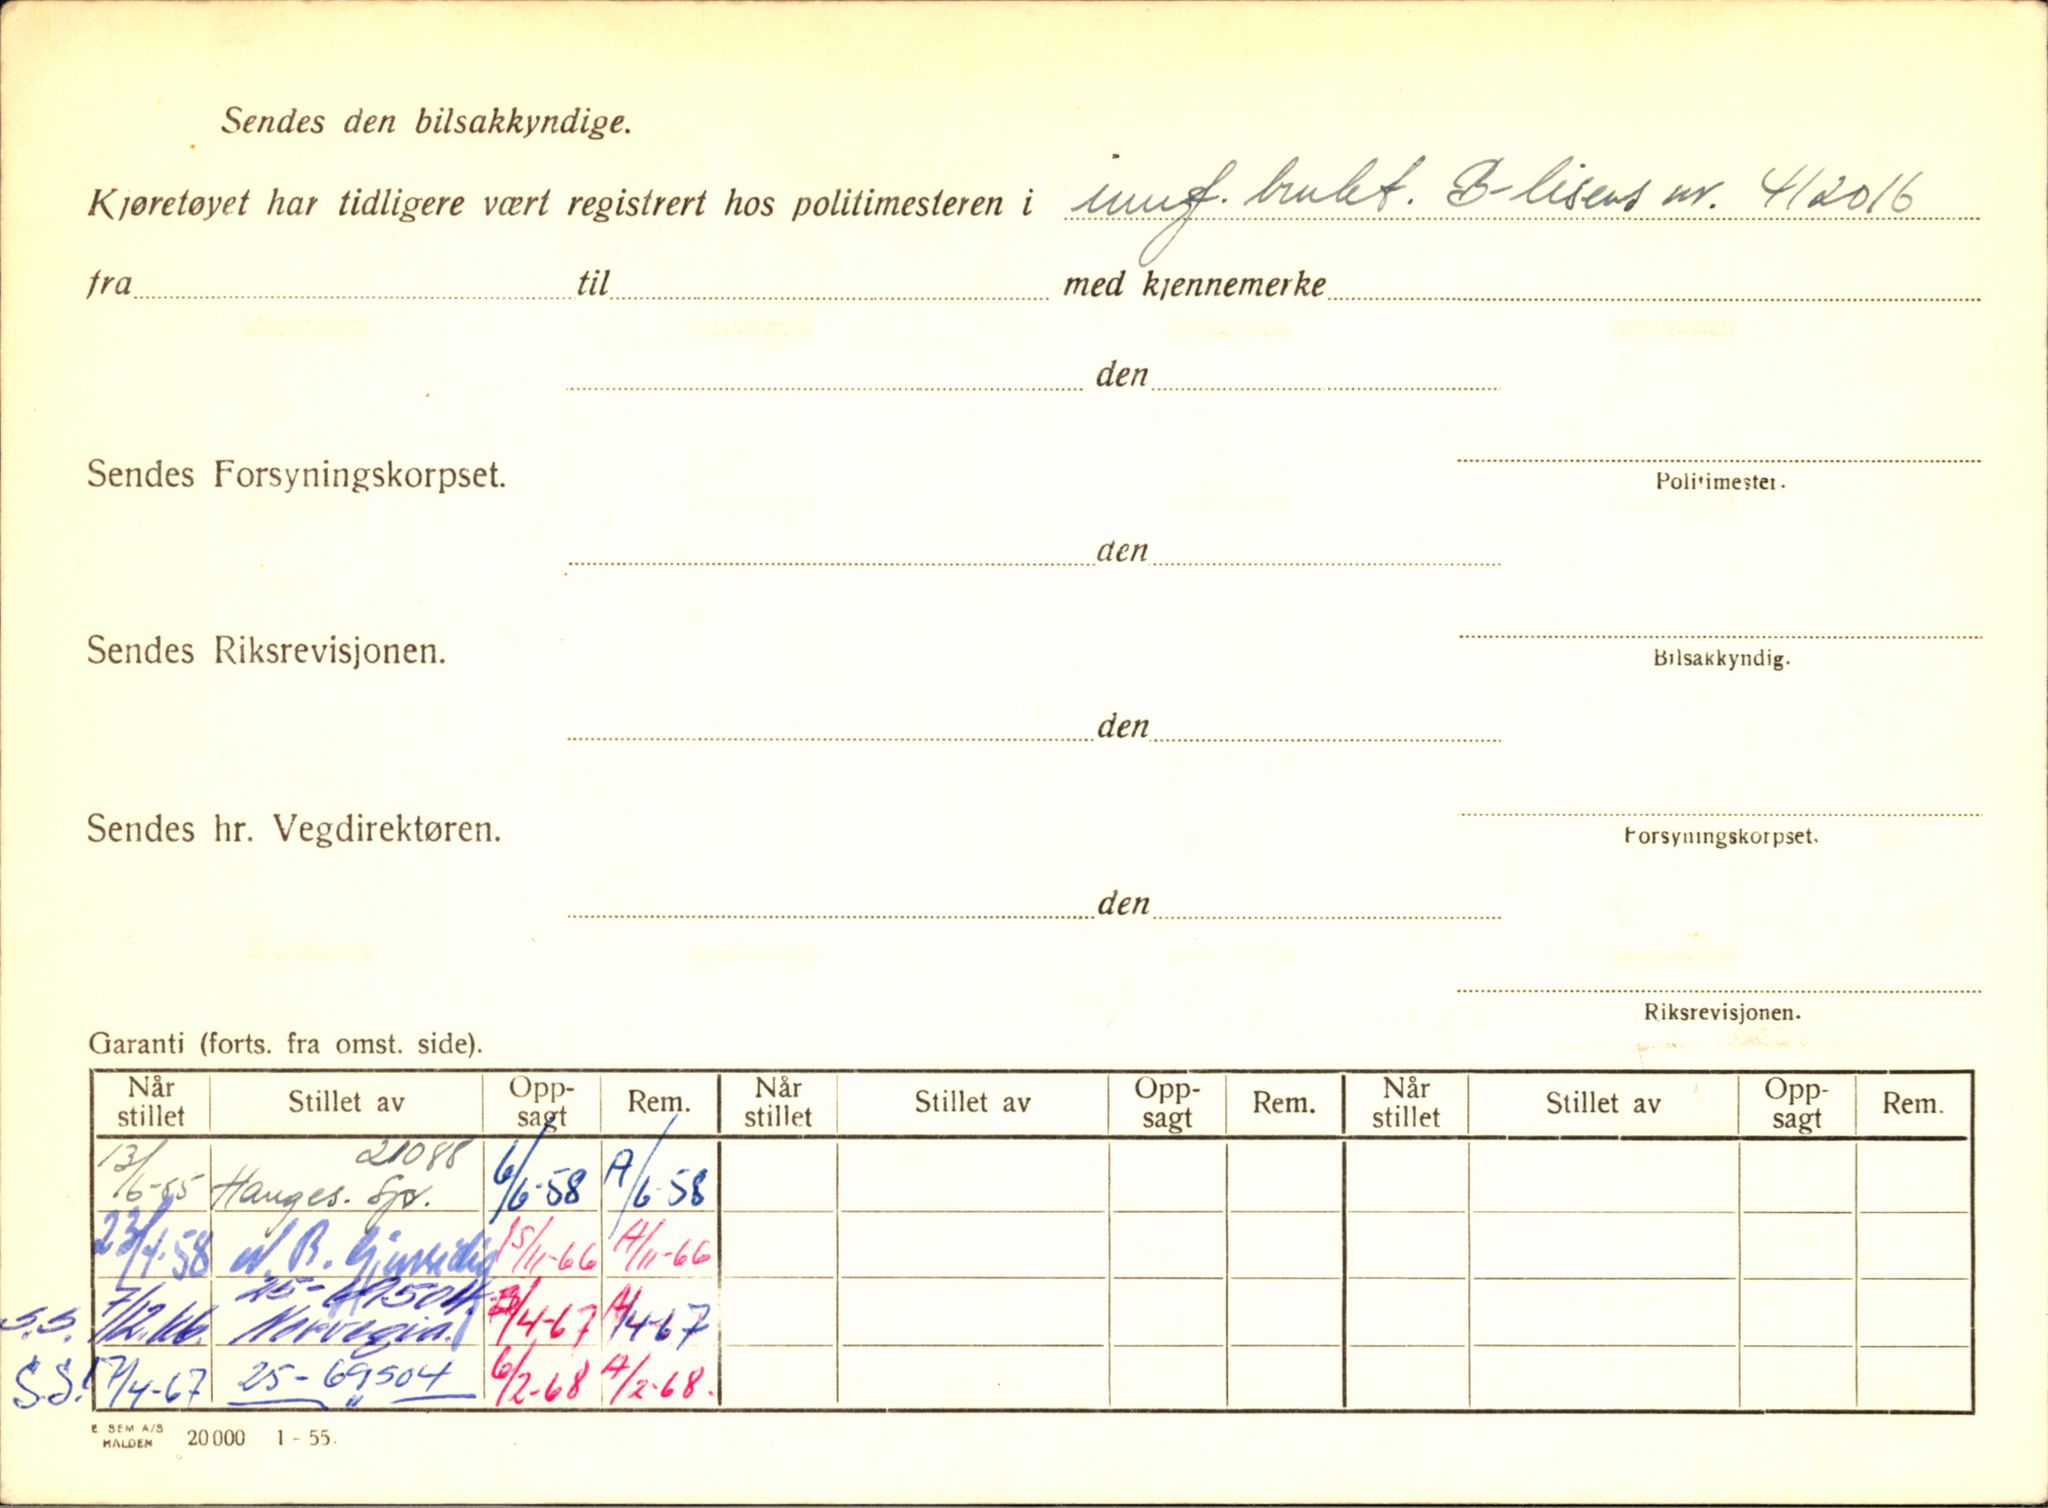 Sendes den bilsakkyndige.
Kjøretøyet har tidligere vært registrert hos politimesteren i innf. brukt. B-lisens nr. 412016
fra til med kjennemerke
den
Sendes Forsyningskorpset.
Politimester.
den
Sendes Riksrevisjonen.
Bilsakkyndig.
den
Sendes hr. Vegdirektøren.
Forsyningskorpset.
den
Riksrevisjonen.
Garanti (forts. fra omst. side).
Når stillet Stillet av Opp-sagt Rem. Når stillet Stillet av Opp-sagt Rem. Når stillet Stillet av Opp-sagt Rem.
21088
13/6-55 Hauges. 6/6-58 A/6-58
23/4-58 15/11-66 A/11-66
25-69504
S.S. 7/12.66. Norvegia. /4-67 A/4-67
S.S! 17/4-67 25-69504 6/2-68 A/2-68.
"
E SEM A/S
HALDEN 20000 1-55.